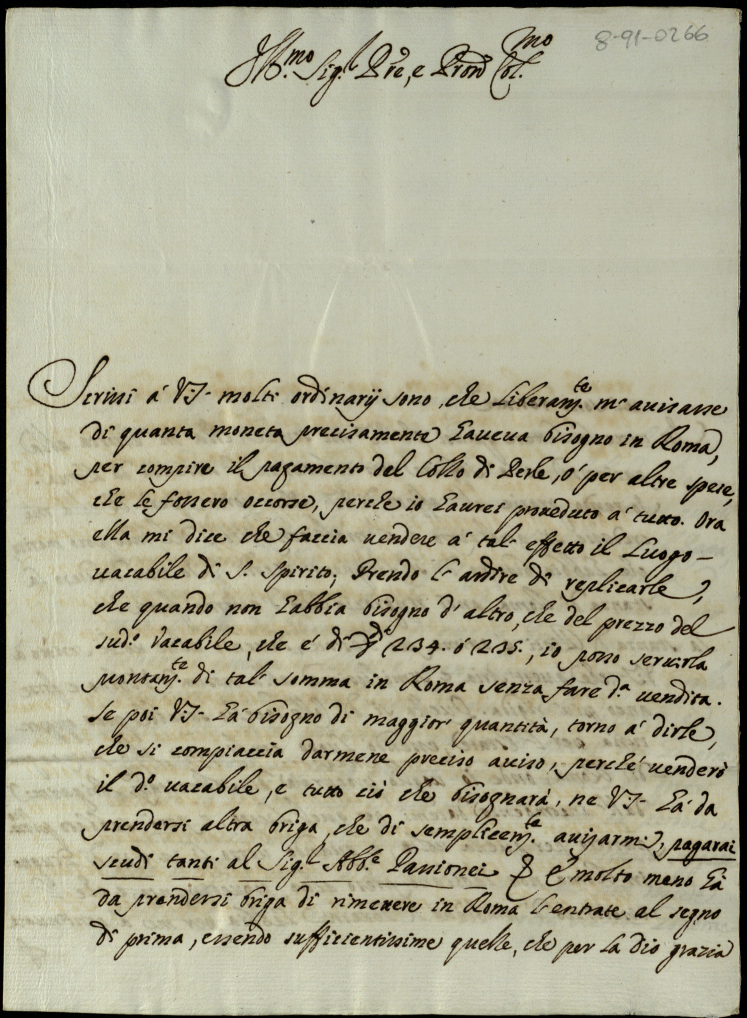 8-91-0266
Ill.mo Sig.r Pre, e Pron Col.mo
Scrissi á VS- molti ordinarij sono, che liberam.te m'auisasse
di quanta moneta precisamente haueua bisogno in Roma,
per compire il pagamento del Collo di Perle, ó per altre spese,
che le fossero occorse, perche io haurei proueduto á tutto. Ora
ella mi dice che faccia uendere á tal' effetto il Luogo-
uacabile di S. Spirito; Prendo l'ardire di replicarle,
che quando non habbia bisogno d'altro, che del prezzo del
sud.o Vacabile, che é di 234. ó 235., io posso seruirla
prontam.te di tal' somma in Roma senza fare d.a uendita.
Se poi VS- há bisogno di maggior' quantitá, torno á dirle,
che si compiaccia darmene preciso auiso, perche uenderó
il d.o uacabile, e tutto ció che bisognará, ne VS- há da
prendersi altra briga, che di semplicem.te auisarmi, pagarai
scudi tanti al Sig.r Abb.e Passionei & é molto meno há
da prendersi briga di rimettere in Roma l'entrate al segno
di prima, essendo sufficientissime quelle, che per la dio grazia